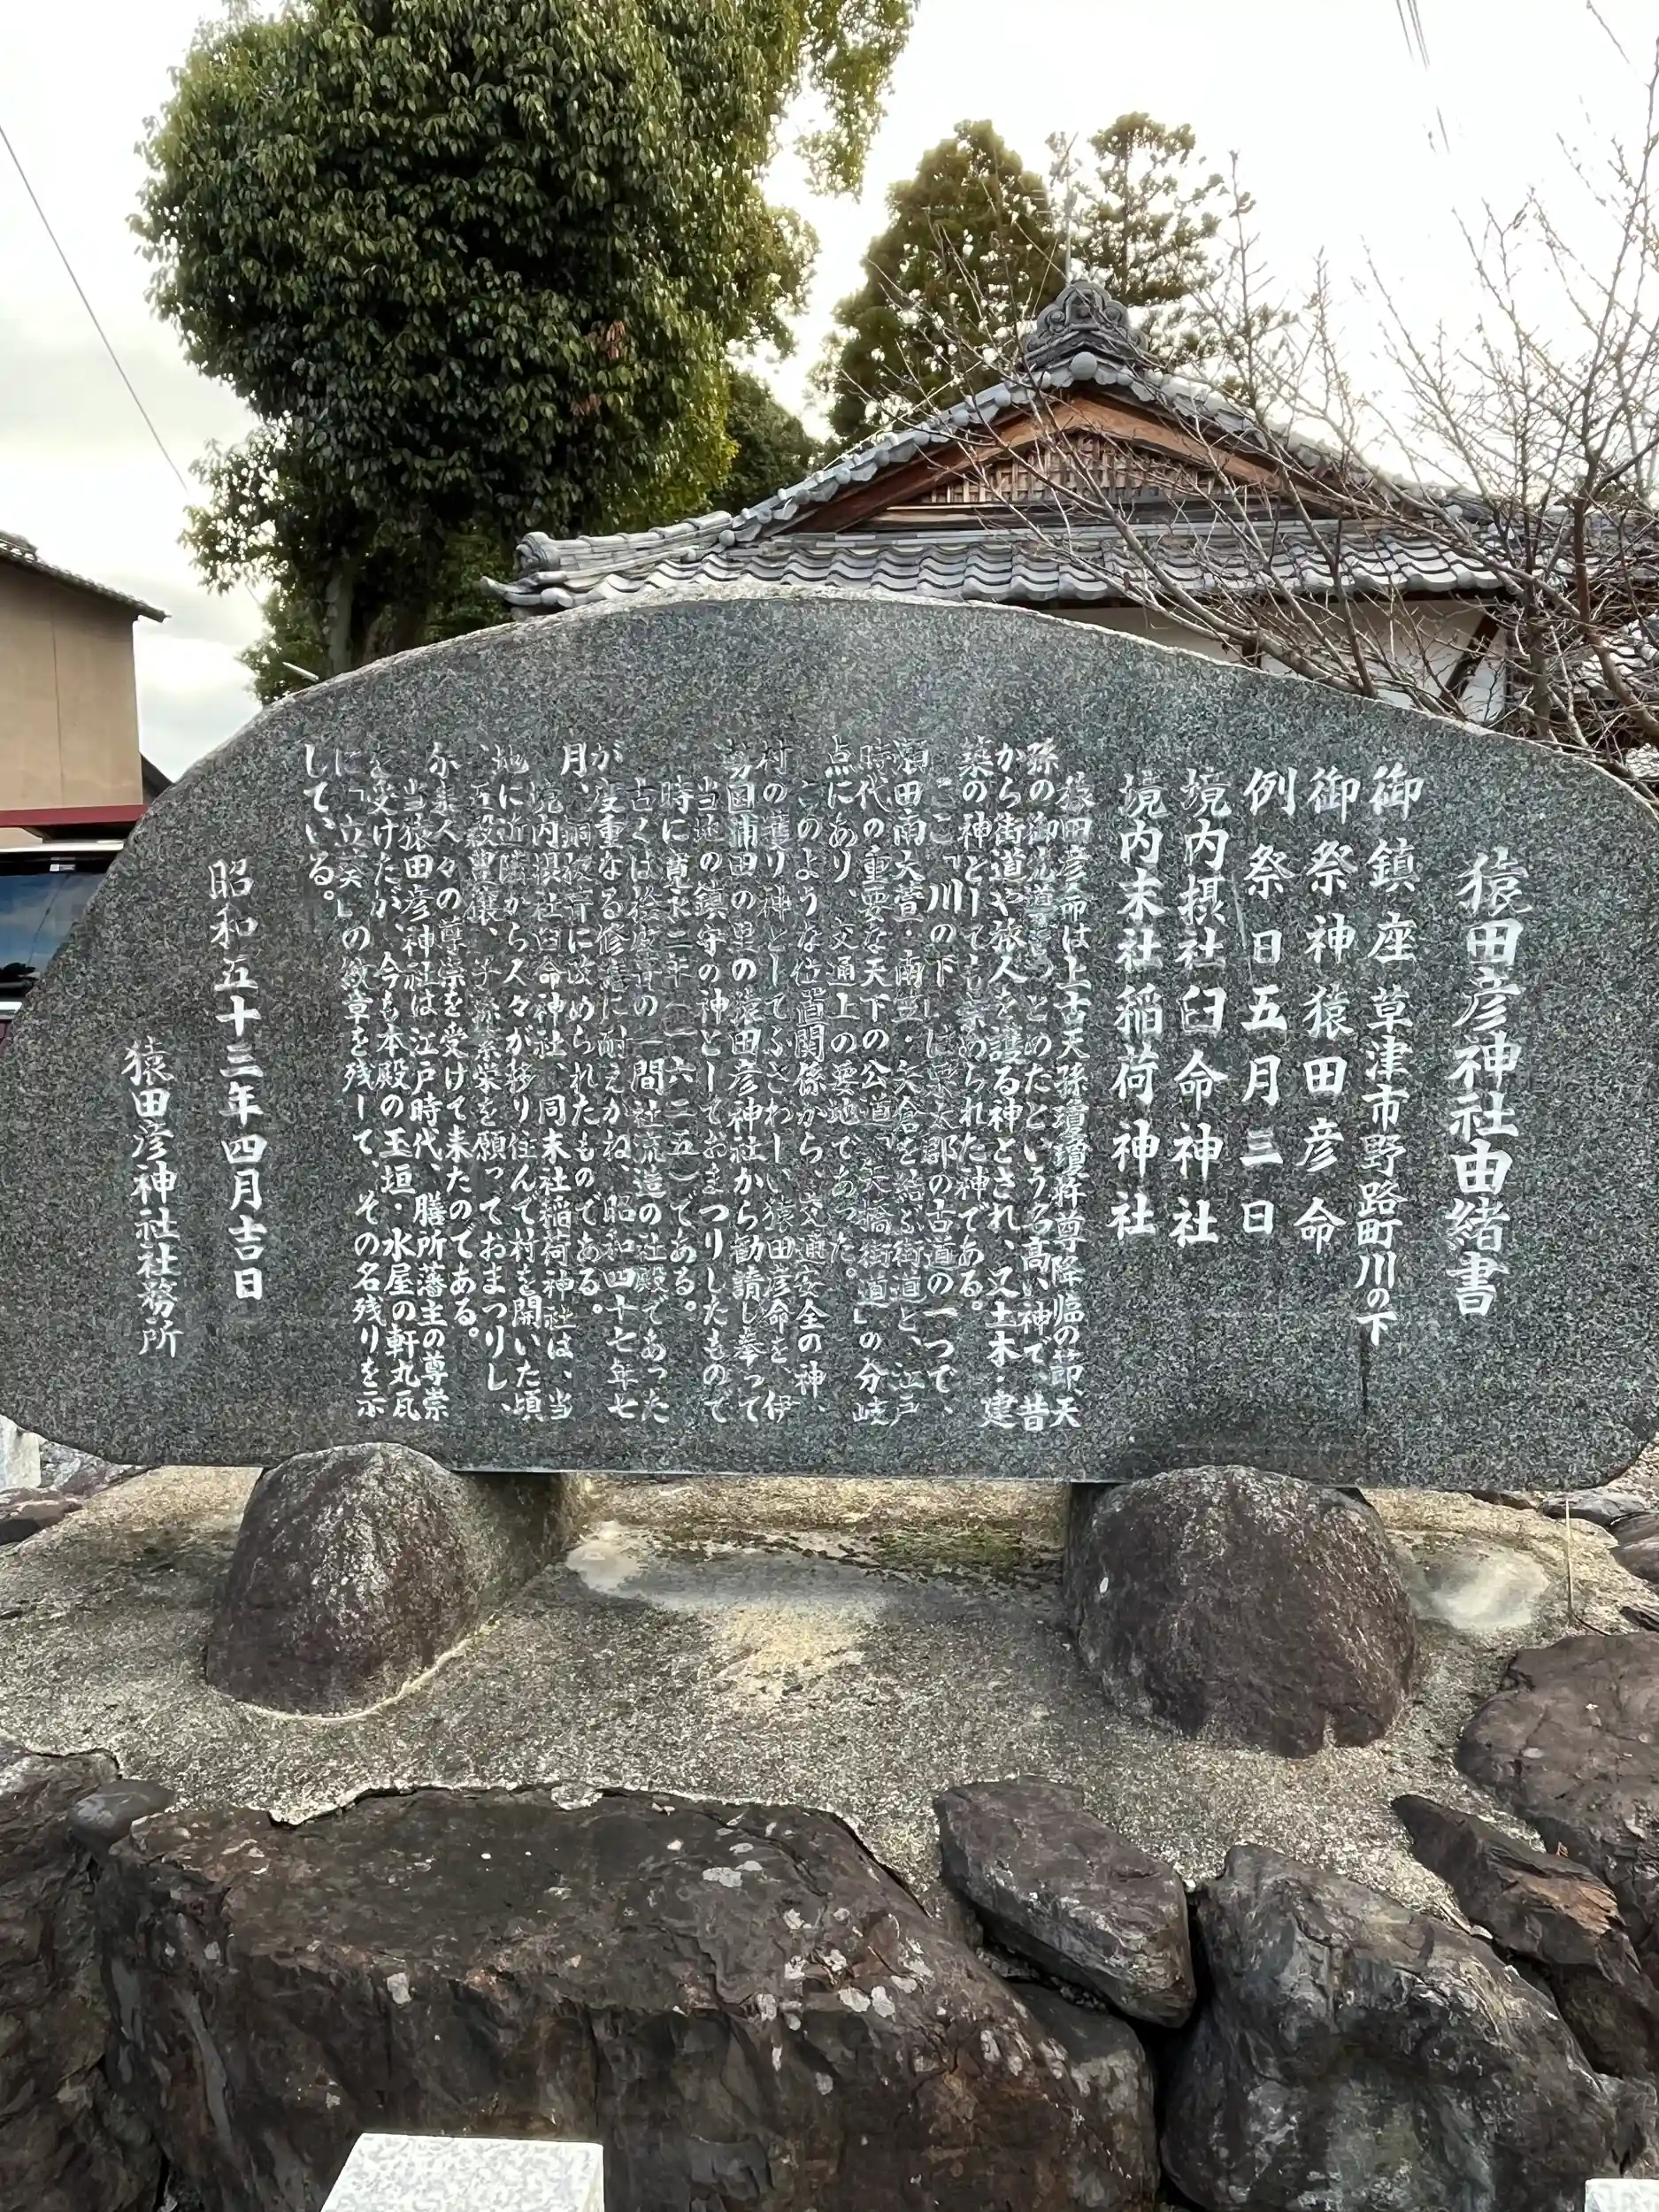 猿田彦神社由緒書
御鎮座 草津市野路町川の下
御祭神 猿田彦命
例祭日 五月三日
境内摂社 臼命神社
境内末社 稲荷神社
猿田彦命は上古天孫瓊瓊杵尊降臨の節、天
孫の御先導をつとめたという名高い神で、昔
から街道や旅人を護る神とされ、又土木・建
築の神としても崇められた神である。
ここ「川の下」は栗太郡の古道の一つで、
瀬田南大萱・南笠・矢倉を結ぶ街道と、江戸
時代の重要な天下の公道「矢橋街道」の分岐
点にあり、交通上の要地であった。
このような位置関係から、交通安全の神、
村の護り神としてふさわしい猿田彦命を、伊
勢国浦田の里の猿田彦神社から勧請し奉って
当地の鎮守の神としておまつりしたもので
時に寛永二年(一六二五)である。
古くは桧皮葺の一間社流造の社殿であった
が度重なる修復に耐えかね、昭和四十七年七
月、銅板葺に改められたものである。
境内摂社臼命神社、同末社稲荷神社は、当
地に近隣から人々が移り住んで村を開いた頃
、五穀豊穣、子孫繁栄を願っておまつりし、
人々の尊崇を受けて来たのである。
当猿田彦神社は江戸時代、膳所藩主の尊崇
を受けたが、今も本殿の玉垣・水屋の軒丸瓦
に「立葵」の紋章を残して、その名残りを示
している。
昭和五十三年四月吉日
猿田彦神社社務所